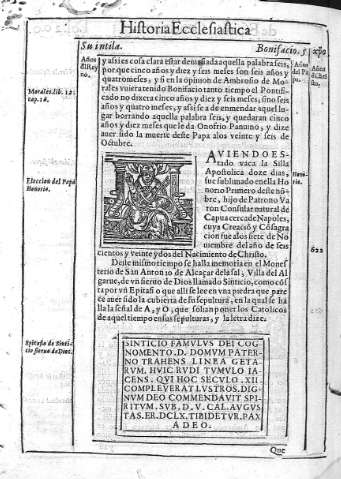 Historia Ecclesiastica
Suintila.
Bonifacio. 5
Años
del Rey
no.
Años
del Pa
pa.
Años
de Chri
sto.
y assi es cosa clara estar demasiada aquella palabra seis,
por que cinco años y diez y seis meses son seis años y
quatro meses, y si en la opinion de Ambrosio de Mo-
rales vuiera tenido Bonifacio tanto tiempo el Pontifi-
cado no dixera cinco años y diez y seis meses, sino seis
años y quatro meses, y assi se a de enmendar aquel lu-
gar borrando aquella palabra seis, y quedaran cinco
años y diez meses que le da Onofrio Panuino, y dize
auer sido la muerte deste Papa a los veinte y seis de
Octubre.
Morales.lib. 12.
cap. 16.
AVIENDO ES-
tado vaca la Silla
Apostolica doze dias,
fue sublimado en ella Ho
norio Primero deste nõ-
bre, hijo de Patrono Va
ron Consular natural de
Capua cerca de Napoles,
cuya Creaciõ y Cõsagra
cion fue a los siete de No
uiembre del año de seis
cientos y veinte y dos del Nacimiento de Christo.
Eleccion del Papa
Honorio.
Hono-
rio.
622
Deste mismo tiempo se halla memoria en el Mones-
terio de San Antonio de Alcaçar dela sal, Villa del Al
garue, de vn sieruo de Dios llamado Sinticio, como cõs
ta por vn Epitafio que alli se lee en vna piedra que pare
ce auer sido la cubierta de su sepultura, en la qual se ha
lla la señal de A, y O, que solian poner los Catolicos
de aquel tiempo en sus sepulturas, y la letra dize.
Epitafio de Sinti-
cio sieruo de Dios.
SINTICIO FAMVLVS DEI COG
NOMENTO. D. DOMVM PATER-
NO TRAHENS LINEA GETA-
RVM. HVIC RVDI TVMVLO IA
CENS. QVI HOC SECVLO .XII
COMPLEVERAT LVSTROS. DIG
NVM DEO COMMENDAVIT SPI-
RITVM. SVB. D. V. CAL. AVGVS
TAS. ER. DCLX. TIBI DETVR. PAX
A DEO.
Que